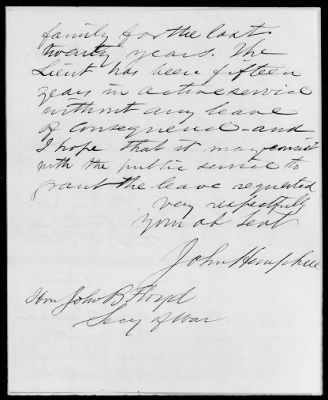 family for the last
twenty years. The
Lieut has been fifteen
years in active service
without any leave
of consequence - and
I hope that it may consist
with the public service to
grant the leave requested
very respectfully
your ob servt
John Hemphill
Hon John B. Floyd
Secy of War